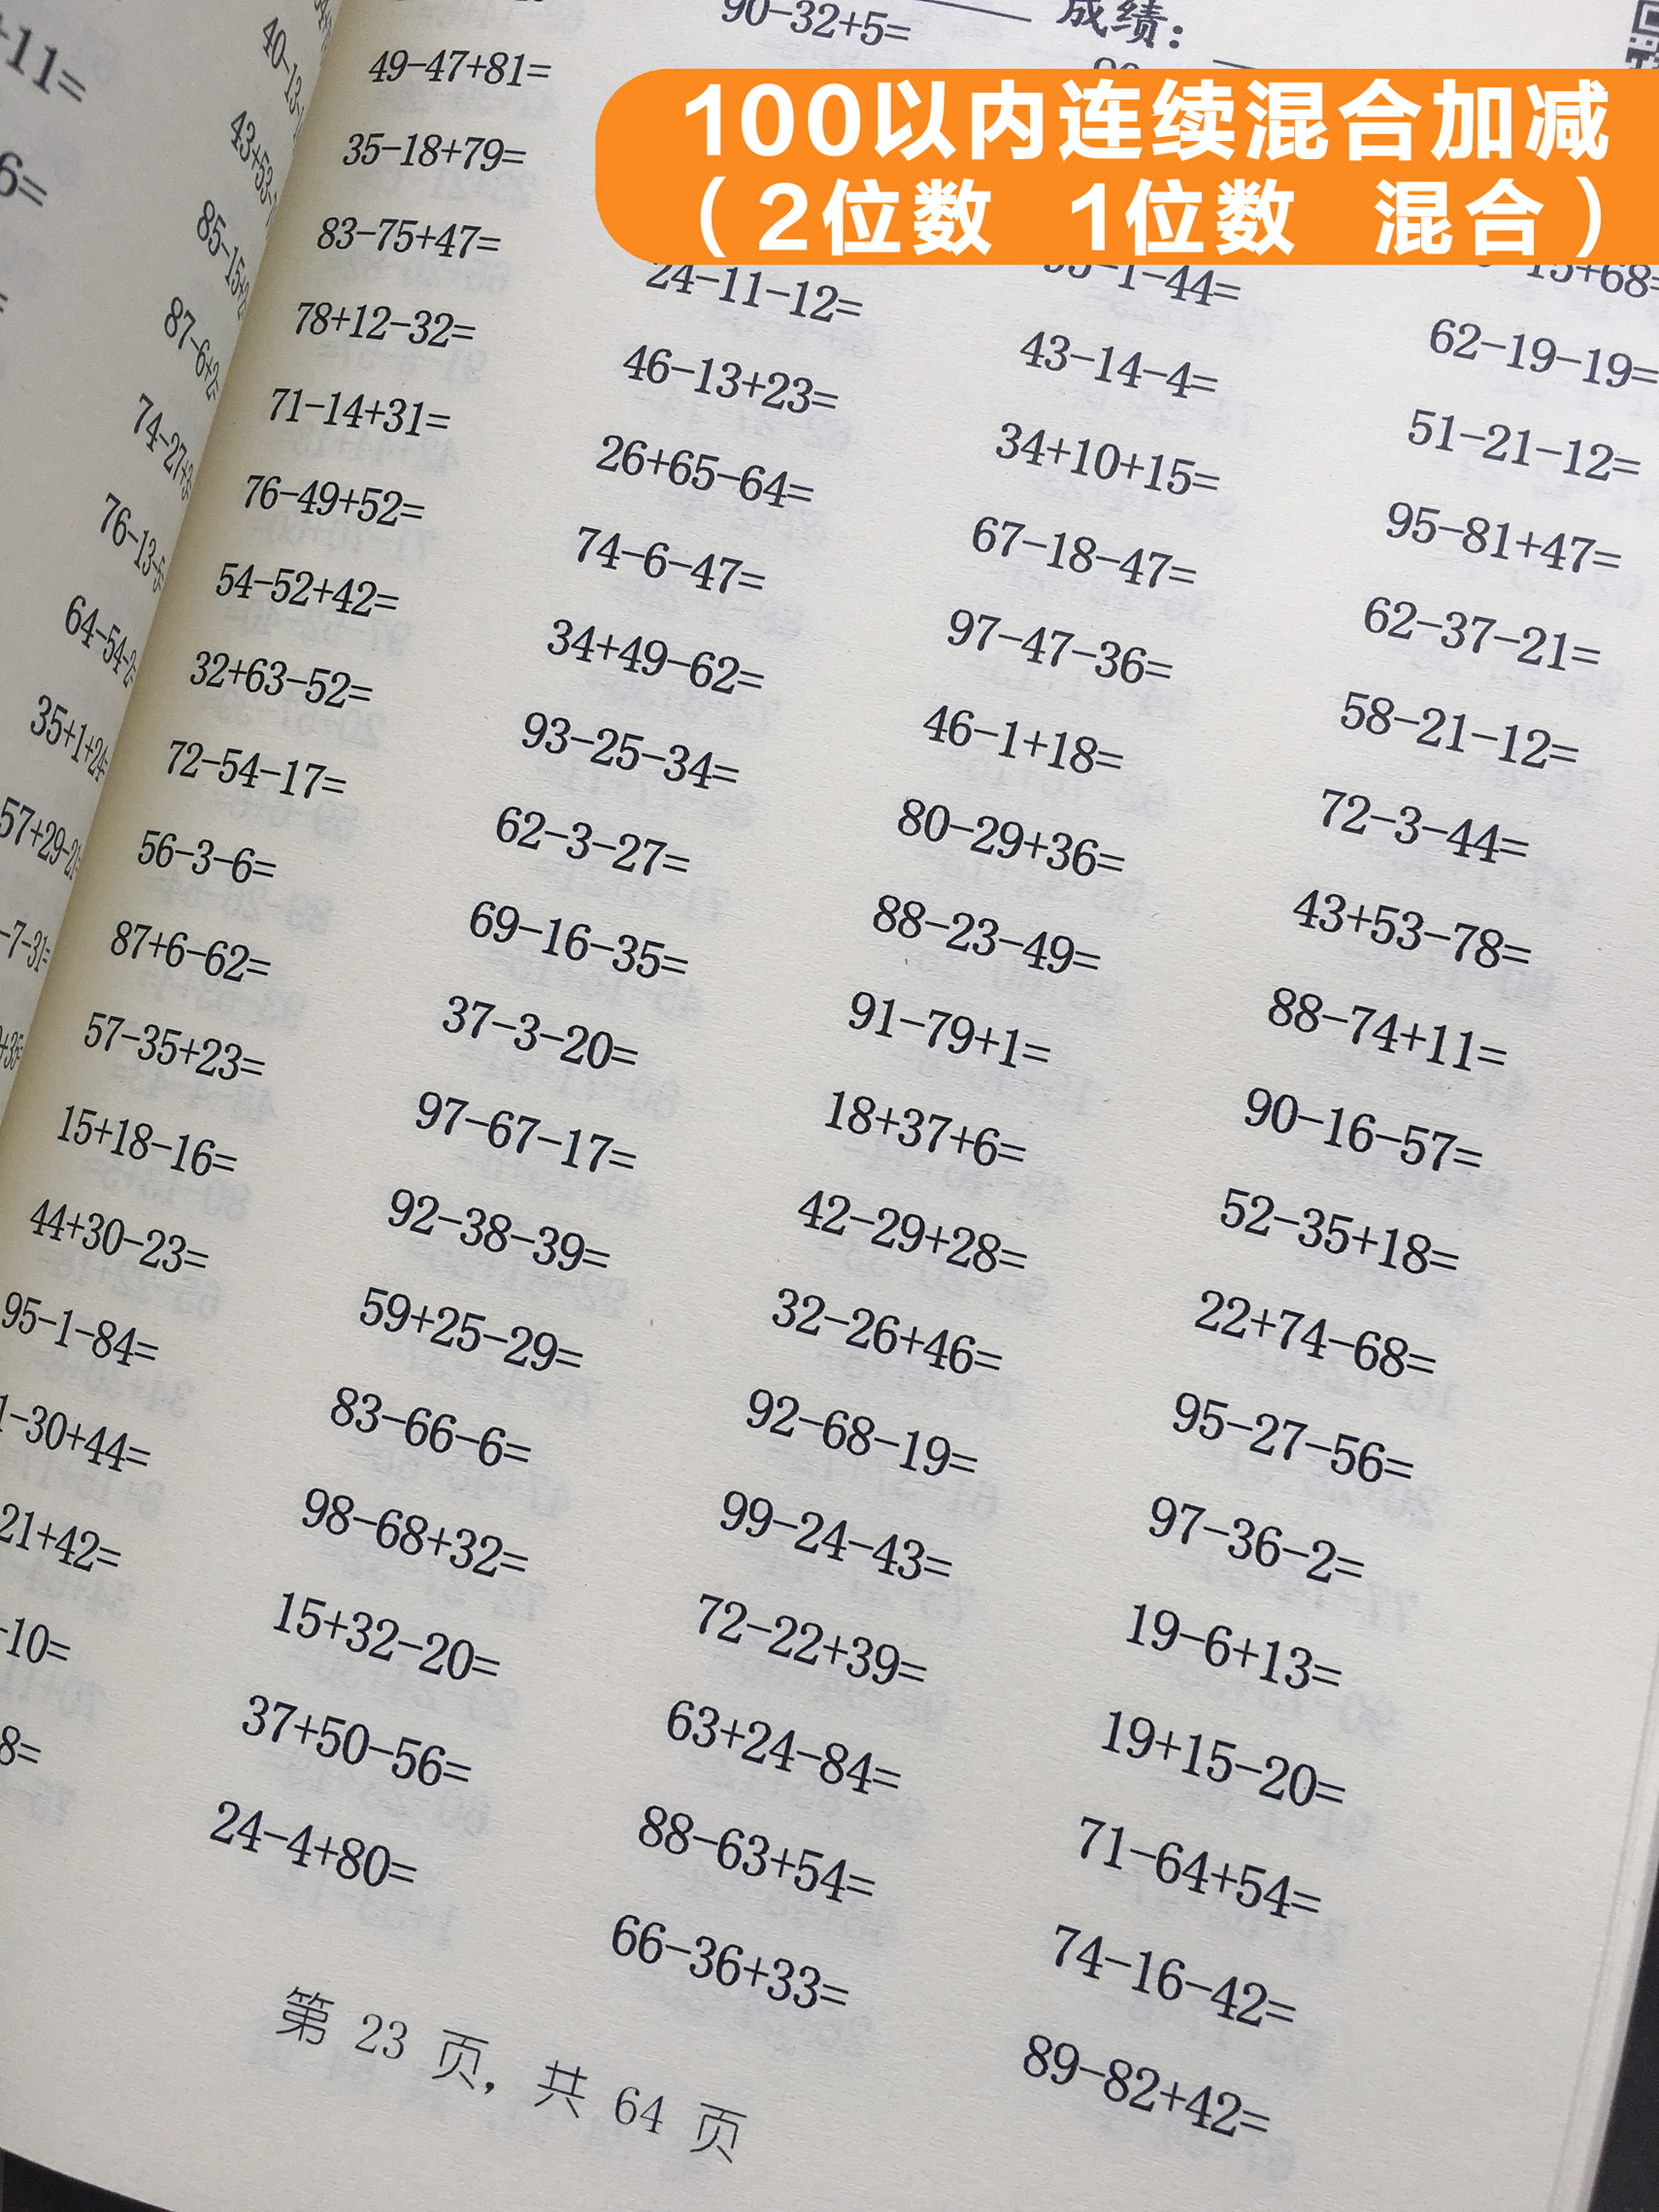 成绩：
100以内连续混合加减
（2位数 1位数 混合）
+11=
6=
40-13-
43+53-
85-15+2
87-6+2=
74-27+3
76-13-5
64-54-2=
35+1+24=
57+29-21=
-7-31=
+35=
49-47+81=
35-18+79=
83-75+47=
78+12-32=
71-14+31=
76-49+52=
54-52+42=
32+63-52=
72-54-17=
56-3-6=
87+6-62=
57-35+23=
15+18-16=
44+30-23=
95-1-84=
1-30+44=
21+42=
-10=
8=
90-32+5=
24-11-12=
46-13+23=
26+65-64=
74-6-47=
34+49-62=
93-25-34=
62-3-27=
69-16-35=
37-3-20=
97-67-17=
92-38-39=
59+25-29=
83-66-6=
98-68+32=
15+32-20=
37+50-56=
24-4+80=
-1-44=
43-14-4=
34+10+15=
67-18-47=
97-47-36=
46-1+18=
80-29+36=
88-23-49=
91-79+1=
18+37+6=
42-29+28=
32-26+46=
92-68-19=
99-24-43=
72-22+39=
63+24-84=
88-63+54=
66-36+33=
15+68=
62-19-19=
51-21-12=
95-81+47=
62-37-21=
58-21-12=
72-3-44=
43+53-78=
88-74+11=
90-16-57=
52-35+18=
22+74-68=
95-27-56=
97-36-2=
19-6+13=
19+15-20=
71-64+54=
74-16-42=
89-82+42=
第 23 页，共 64 页